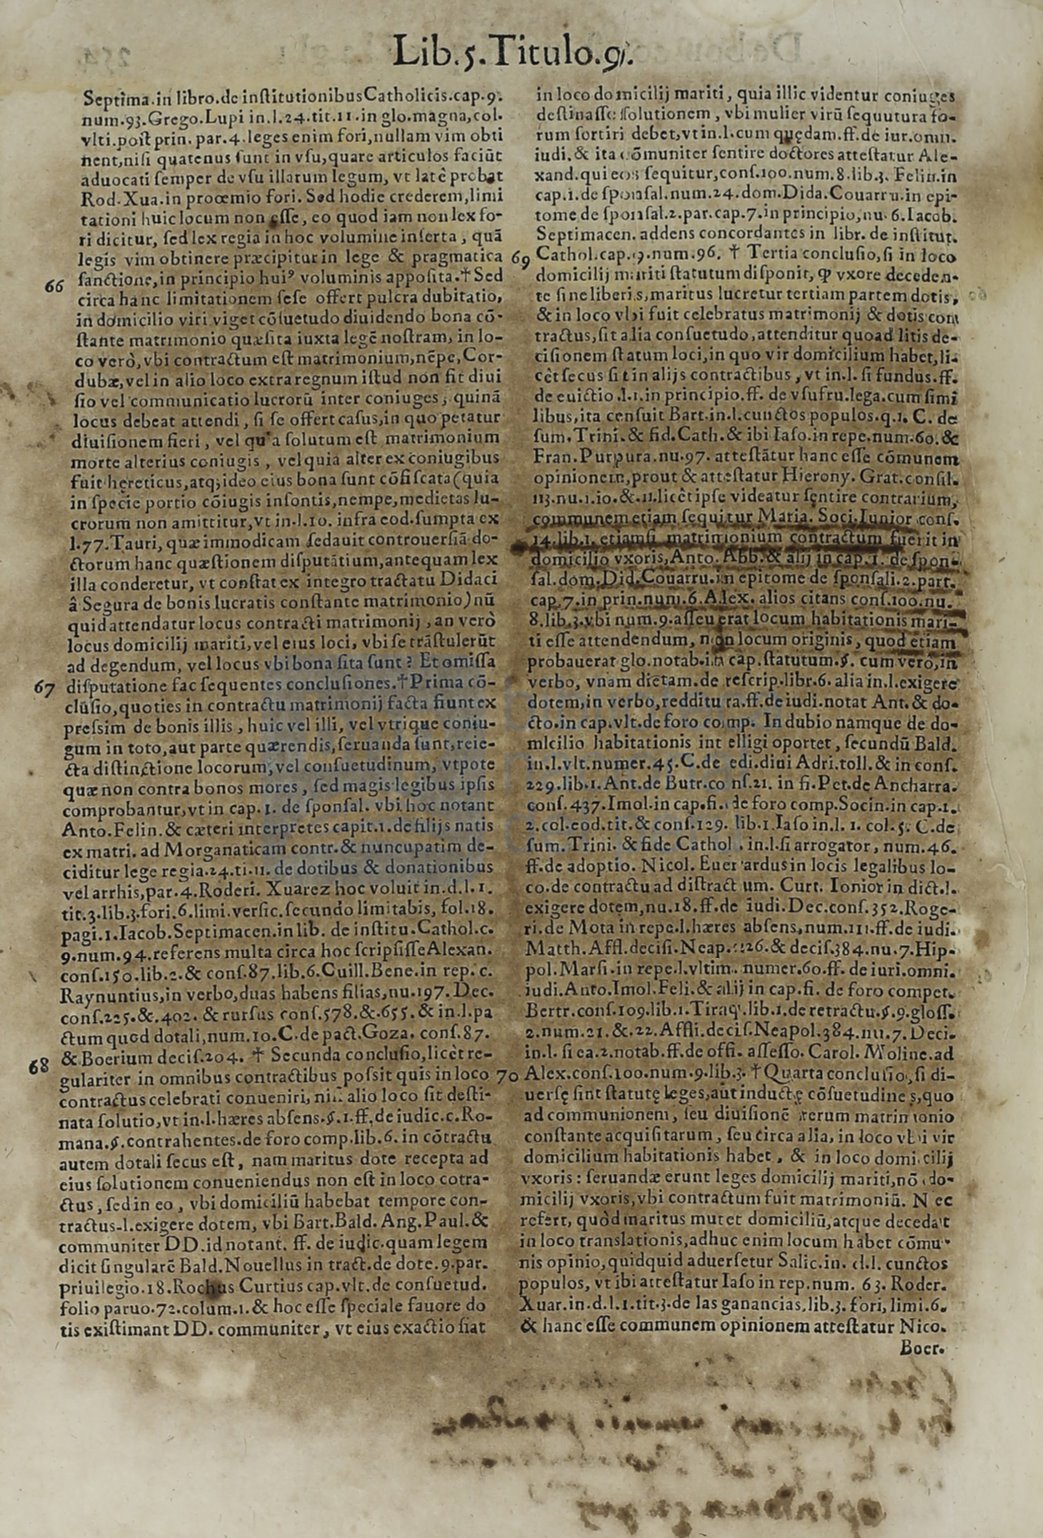 Lib.5.Titulo.9.
Septima.in libro.de institutionibusCatholicis.cap.9.
num.93.Grego.Lupi in.l.24.tit.11.in glo.magna,col.
vlti.post prin.par.4.leges enim fori,nullam vim obti
nent,nisi quatenus sunt in vsu,quare articulos faciũt
aduocati semper de vsu illarum legum, vt latè probat
Rod.Xua.in proœmio fori. Sed hodie crederem,limi
tationi huic locum non esse, eo quod iam non lex fo-
ri dicitur, sed lex regia in hoc volumine inserta, quã
legis vim obtinere præcipitur in lege & pragmatica
66 sanctione,in principio huiꝰ voluminis apposita.† Sed
circa hanc limitationem sese offert pulcra dubitatio,
in domicilio viri viget cõsuetudo diuidendo bona cõ-
stante matrimonio quæsita iuxta legẽ nostram, in lo-
co verò,vbi contractum est matrimonium,nẽpe,Cor-
dubæ,vel in alio loco extra regnum istud non fit diui
sio vel communicatio lucrorũ inter coniuges, quinã
locus debeat attendi, si se offert casus,in quo petatur
diuisionem fieri, vel quia solutum est matrimonium
morte alterius coniugis, vel quia alter ex coniugibus
fuit hęreticus,atq;ideo eius bona sunt cõfiscata(quia
in specie portio cõiugis insontis,nempe,medietas lu-
crorum non amittitur,vt in.l.10. infra eod.sumpta ex
l.77.Tauri, quæ immodicam sedauit controuersiã do-
ctorum hanc quæstionem disputãtium,antequam lex
illa conderetur, vt constat ex integro tractatu Didaci
â Segura de bonis lucratis constante matrimonio)nũ
quid attendatur locus contracti matrimonij, an verò
locus domicilij mariti,vel eius loci, vbi se trãstulerũt
ad degendum, vel locus vbi bona sita sunt? Et omissa
67 disputatione fac sequentes conclusiones.† Prima cõ-
clusio,quoties in contractu matrimonij facta fiunt ex
pressim de bonis illis, huic vel illi, vel vtrique coniu-
gum in toto,aut parte quærendis,seruanda sunt,reie-
cta distinctione locorum,vel consuetudinum, vtpote
quæ non contra bonos mores, sed magis legibus ipsis
comprobantur,vt in cap.1. de sponsal. vbi hoc notant
Anto.Felin.& cæteri interpretes capit.1.de filijs natis
ex matri. ad Morganaticam contr.& nuncupatim de-
ciditur lege regia.24.ti.11. de dotibus & donationibus
vel arrhis,par.4.Roderi. Xuarez hoc voluit in.d.l.1.
tit.3.lib.3.fori.6.limi.versic.secundo limitabis, fol.18.
pagi.1.Iacob.Septimacen.in lib. de institu.Cathol.c.
9.num.94.referens multa circa hoc scripsisseAlexan.
cons.150.lib.2.& cons.87.lib.6.Cuill.Bene.in rep.c.
Raynuntius,in verbo,duas habens filias,nu.197.Dec.
cons.225.&.402. & rursus cons.578.&.655.& in.l.pa
ctum quod dotali,num.10.C.de pact.Goza. cons.87.
68 & Boerium decis.204. † Secunda conclusio,licèt re-
gulariter in omnibus contractibus possit quis in loco
contractus celebrati conueniri, nisi alio loco sit desti-
nata solutio,vt in.l.hæres absens.§.1.ff.de iudic.c.Ro-
mana.§.contrahentes.de foro comp.lib.6.in cõtractu
autem dotali secus est, nam maritus dote recepta ad
eius solutionem conueniendus non est in loco cotra-
ctus, sed in eo, vbi domiciliũ habebat tempore con-
tractus-l.exigere dotem, vbi Bart.Bald. Ang.Paul.&
communiter DD.id notant. ff. de iudic.quam legem
dicit singularẽ Bald.Nouellus in tract.de dote.9.par.
priuilegio.18.Rochus Curtius cap.vlt.de consuetud.
folio paruo.72.colum.1.& hoc esse speciale fauore do
tis existimant DD. communiter, vt eius exactio fiat
in loco domicilij mariti, quia illic videntur coniuges
destinasse solutionem, vbi mulier virũ sequutura fo-
rum sortiri debet,vt in.l.cum quędam.ff.de iur.omn.
iudi.& ita cõmuniter sentire doctores attestatur Ale-
xand.qui eos sequitur,cons.100.num.8.lib.3. Felin.in
cap.1.de sponsal.num.24.dom.Dida.Couarru.in epi-
tome de sponsal.2.par.cap.7.in principio,nu.6.Iacob.
Septimacen. addens concordantes in libr. de institut.
69 Cathol.cap.9.num.96. † Tertia conclusio,si in loco
domicilij mariti statutum disponit, ꝙ vxore deceden-
te sine liberis,maritus lucretur tertiam partem dotis,
& in loco vbi fuit celebratus matrimonij & dotis con
tractus,sit alia consuetudo,attenditur quoad litis de-
cisionem statum loci,in quo vir domicilium habet,li-
cèt secus sit in alijs contractibus, vt in.l. si fundus.ff.
de euictio.l.1.in principio.ff. de vsufru.lega.cum simi
libus,ita censuit Bart.in.l.cunctos populos.q.1. C. de
sum.Trini.& fid.Cath.& ibi Iaso.in repe.num.60.&
Fran.Purpura.nu.97. attestãtur hanc esse cõmunem
opinionem,prout & attestatur Hierony. Grat.consil.
113.nu.1.10.&.11.licèt ipse videatur sentire contrarium,
communem etiam sequitur Maria. Soci.Iunior cons.
14.lib.1. etiamsi matrimonium contractum fuerit in
domicilio vxoris,Anto. Abb.& alij in cap.1. de spon-
sal.dom.Did.Couarru.in epitome de sponsali.2.part.
cap.7.in prin.num.6.Alex. alios citans cons.100.nu.
8.lib.3.vbi num.9.asseuerat locum habitationis mari-
ti esse attendendum, non locum originis, quod etiam
probauerat glo.notab.in cap.statutum.§. cum vero,in
verbo, vnam dietam.de rescrip.libr.6. alia in.l.exigere
dotem,in verbo,redditura.ff.de iudi.notat Ant.& do-
cto.in cap.vlt.de foro comp. In dubio namque de do-
micilio habitationis intelligi oportet, secundũ Bald.
in.l.vlt.numer.45.C.de edi.diui Adri.toll.& in cons.
229.lib.1.Ant.de Butr.consi.21. in fi.Pet.de Ancharra.
cons.437.Imol.in cap.fi.de foro comp.Socin.in cap.1.
2.col.eod.tit.& cons.129. lib.1.Iaso in.l. 1. col.5. C.de
sum.Trini. & fide Cathol. in.l.si arrogator, num.46.
ff.de adoptio. Nicol. Euerardus in locis legalibus lo-
co.de contractu ad distractum. Curt. Ionior in dict.l.
exigere dotem,nu.18.ff.de iudi.Dec.cons.352.Roge-
ri.de Mota in repe.l.hæres absens,num.111.ff.de iudi.
Matth.Affl.decisi.Neap.226.& decis.384.nu.7.Hip-
pol.Marsi.in repe.l.vltim. numer.60.ff.de iuri.omni.
iudi.Anto.Imol.Feli.& alij in cap.fi. de foro compet.
Bertr.cons.109.lib.1.Tiraq.lib.1.de retractu.§.9.gloss.
2.num.21.&.22.Affli.decis.Neapol.384.nu.7.Deci.
in.l. si ea.2.notab.ff.de offi. assesso. Carol. Moline.ad
70 Alex.cons.100.num.9.lib.3. † Quarta conclusio, si di-
uersę sint statutę leges,aut inductę cõsuetudines,quo
ad communionem, seu diuisionẽ rerum matrimonio
constante acquisitarum, seu circa alia, in loco vbi vir
domicilium habitationis habet, & in loco domicilij
vxoris: seruandæ erunt leges domicilij mariti,nõ do-
micilij vxoris,vbi contractum fuit matrimoniũ. Nec
refert, quòd maritus mutet domiciliũ,atque decedat
in loco translationis,adhuc enim locum habet cõmu-
nis opinio,quidquid aduersetur Salic.in. d.l. cunctos
populos, vt ibi attestatur Iaso in rep.num. 63. Roder.
Xuar.in.d.l.1.tit.3.de las ganancias,lib.3. fori,limi.6.
& hanc esse communem opinionem attestatur Nico.
Boer.